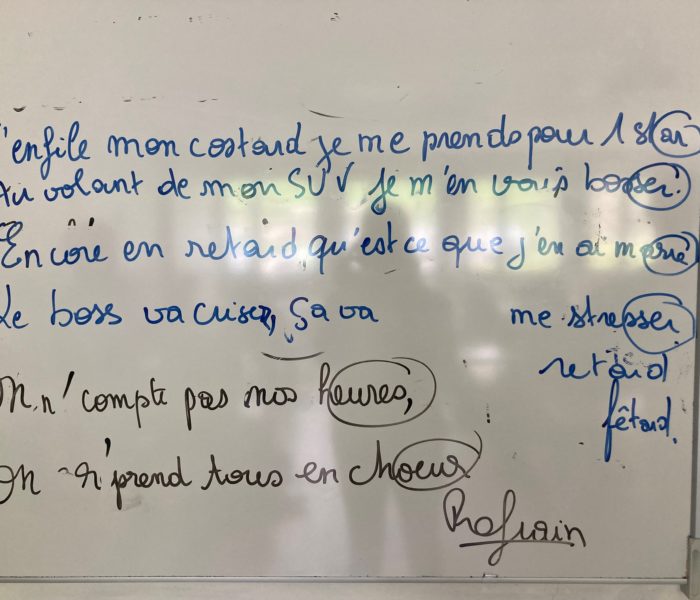 'enfile mon costard je me prends pour 1 star
Au volant de mon SUV je m'en vais bosser.
Encore en retard, qu'est ce que j'en ai marre
Le boss va criser, ça va me stresser
retard
fêtard.
On n'compte pas nos heures,
On r'prend tous en choeur
Refrain